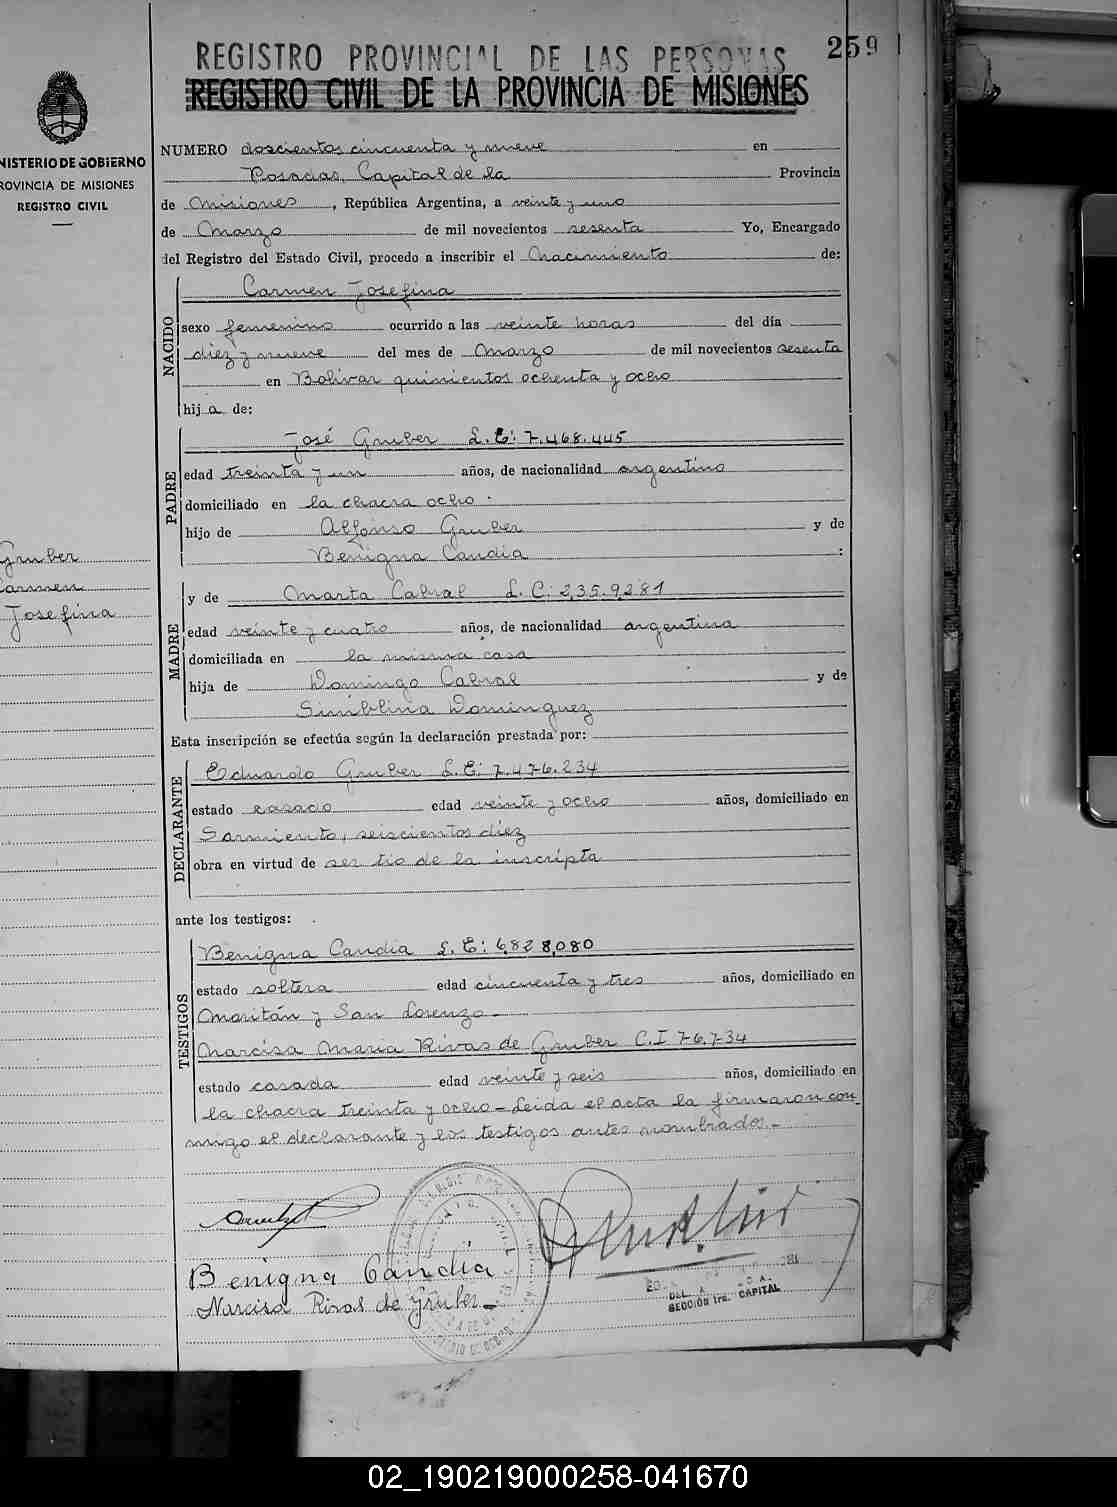 259
REGISTRO PROVINCIAL DE LAS PERSONAS
REGISTRO CIVIL DE LA PROVINCIA DE MISIONES
NISTERIO DE GOBIERNO
ROVINCIA DE MISIONES
REGISTRO CIVIL
NUMERO doscientos cincuenta y nueve en
Posadas, Capital de la Provincia
de Misiones, República Argentina, a veinte y uno
de Marzo de mil novecientos sesenta Yo, Encargado
del Registro del Estado Civil, procedo a inscribir el Nacimiento de:
NACIDO
Carmen Josefina
sexo femenino ocurrido a las veinte horas del día
diez y nueve del mes de Marzo de mil novecientos sesenta
en Bolivar quinientos ochenta y ocho
hija de:
PADRE
José Gruber L.E: 7.468.445
edad treinta y un años, de nacionalidad argentino
domiciliado en la chacra ocho.
hijo de Alfonso Gruber y de
Benigna Candia :
Gruber
Carmen
Josefina
MADRE
y de Marta Cabral L.C: 2.359.281
edad veinte y cuatro años, de nacionalidad argentina
domiciliada en la misma casa
hija de Domingo Cabral y de
Dominguez
Esta inscripción se efectúa según la declaración prestada por:
DECLARANTE
Eduardo Gruber L.E: 7.476.234
estado casado edad veinte y ocho años, domiciliado en
Sarmiento, seiscientos diez
obra en virtud de ser tío de la inscripta
ante los testigos:
TESTIGOS
Benigna Candia L.E: 6.828.080
estado soltera edad cincuenta y tres años, domiciliado en
Maritán y San Lorenzo-
Narcisa Maria Rivas de Gruber C.I 76.734
estado casada edad veinte y seis años, domiciliado en
la chacra treinta y ocho - Leida el acta la firmaron con-
migo el declarante y los testigos antes nombrados.-
Benigna Candia
Narcisa Rivas de Gruber-
SECCIÓN 1ra. CAPITAL
02_190219000258-041670